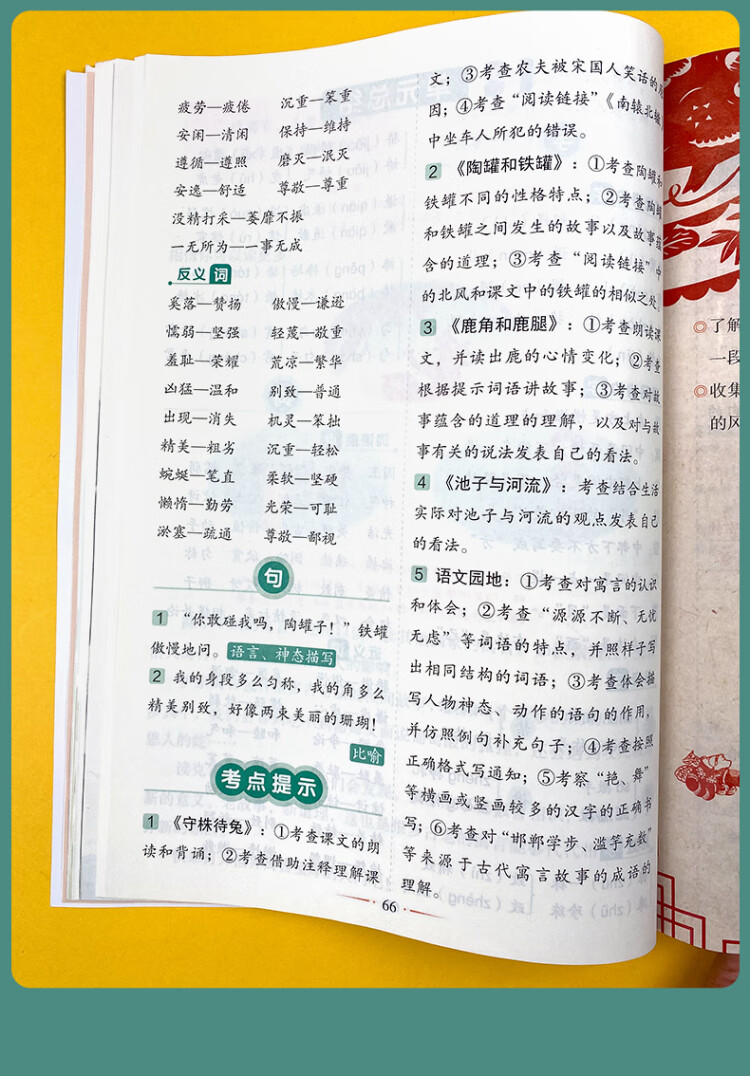 疲劳—疲倦 沉重—笨重
安闲—清闲 保持—维持
遵循—遵照 磨灭—泯灭
安逸—舒适 尊敬—尊重
没精打采—萎靡不振
一无所为—一事无成
反义词
奚落—赞扬 傲慢—谦逊
懦弱—坚强 轻蔑—敬重
羞耻—荣耀 荒凉—繁华
凶猛—温和 别致—普通
出现—消失 机灵—笨拙
精美—粗劣 沉重—轻松
蜿蜒—笔直 柔软—坚硬
懒惰—勤劳 光荣—可耻
淤塞—疏通 尊敬—鄙视
句
1 “你敢碰我吗，陶罐子！”铁罐
傲慢地问。语言、神态描写
2 我的身段多么匀称，我的角多么
精美别致，好像两束美丽的珊瑚！
比喻
考点提示
1 《守株待兔》：①考查课文的朗
读和背诵；②考查借助注释理解课
文；③考查农夫被宋国人笑话的原
因；④考查“阅读链接”《南辕北辙》
中坐车人所犯的错误。
2 《陶罐和铁罐》：①考查陶罐和
铁罐不同的性格特点；②考查陶罐
和铁罐之间发生的故事以及故事蕴
含的道理；③考查“阅读链接”中
的北风和课文中的铁罐的相似之处。
3 《鹿角和鹿腿》：①考查朗读课
文，并读出鹿的心情变化；②考查
根据提示词语讲故事；③考查对故
事蕴含的道理的理解，以及对与故
事有关的说法发表自己的看法。
4 《池子与河流》：考查结合生活
实际对池子与河流的观点发表自己
的看法。
5 语文园地：①考查对寓言的认识
和体会；②考查“源源不断、无忧
无虑”等词语的特点，并照样子写
出相同结构的词语；③考查体会描
写人物神态、动作的语句的作用，
并仿照例句补充句子；④考查按照
正确格式写通知；⑤考察“艳、彝”
等横画或竖画较多的汉字的正确书
写；⑥考查对“邯郸学步、滥竽充数”
等来源于古代寓言故事的成语的
理解。
66
◎了解
一段
◎收集
的风